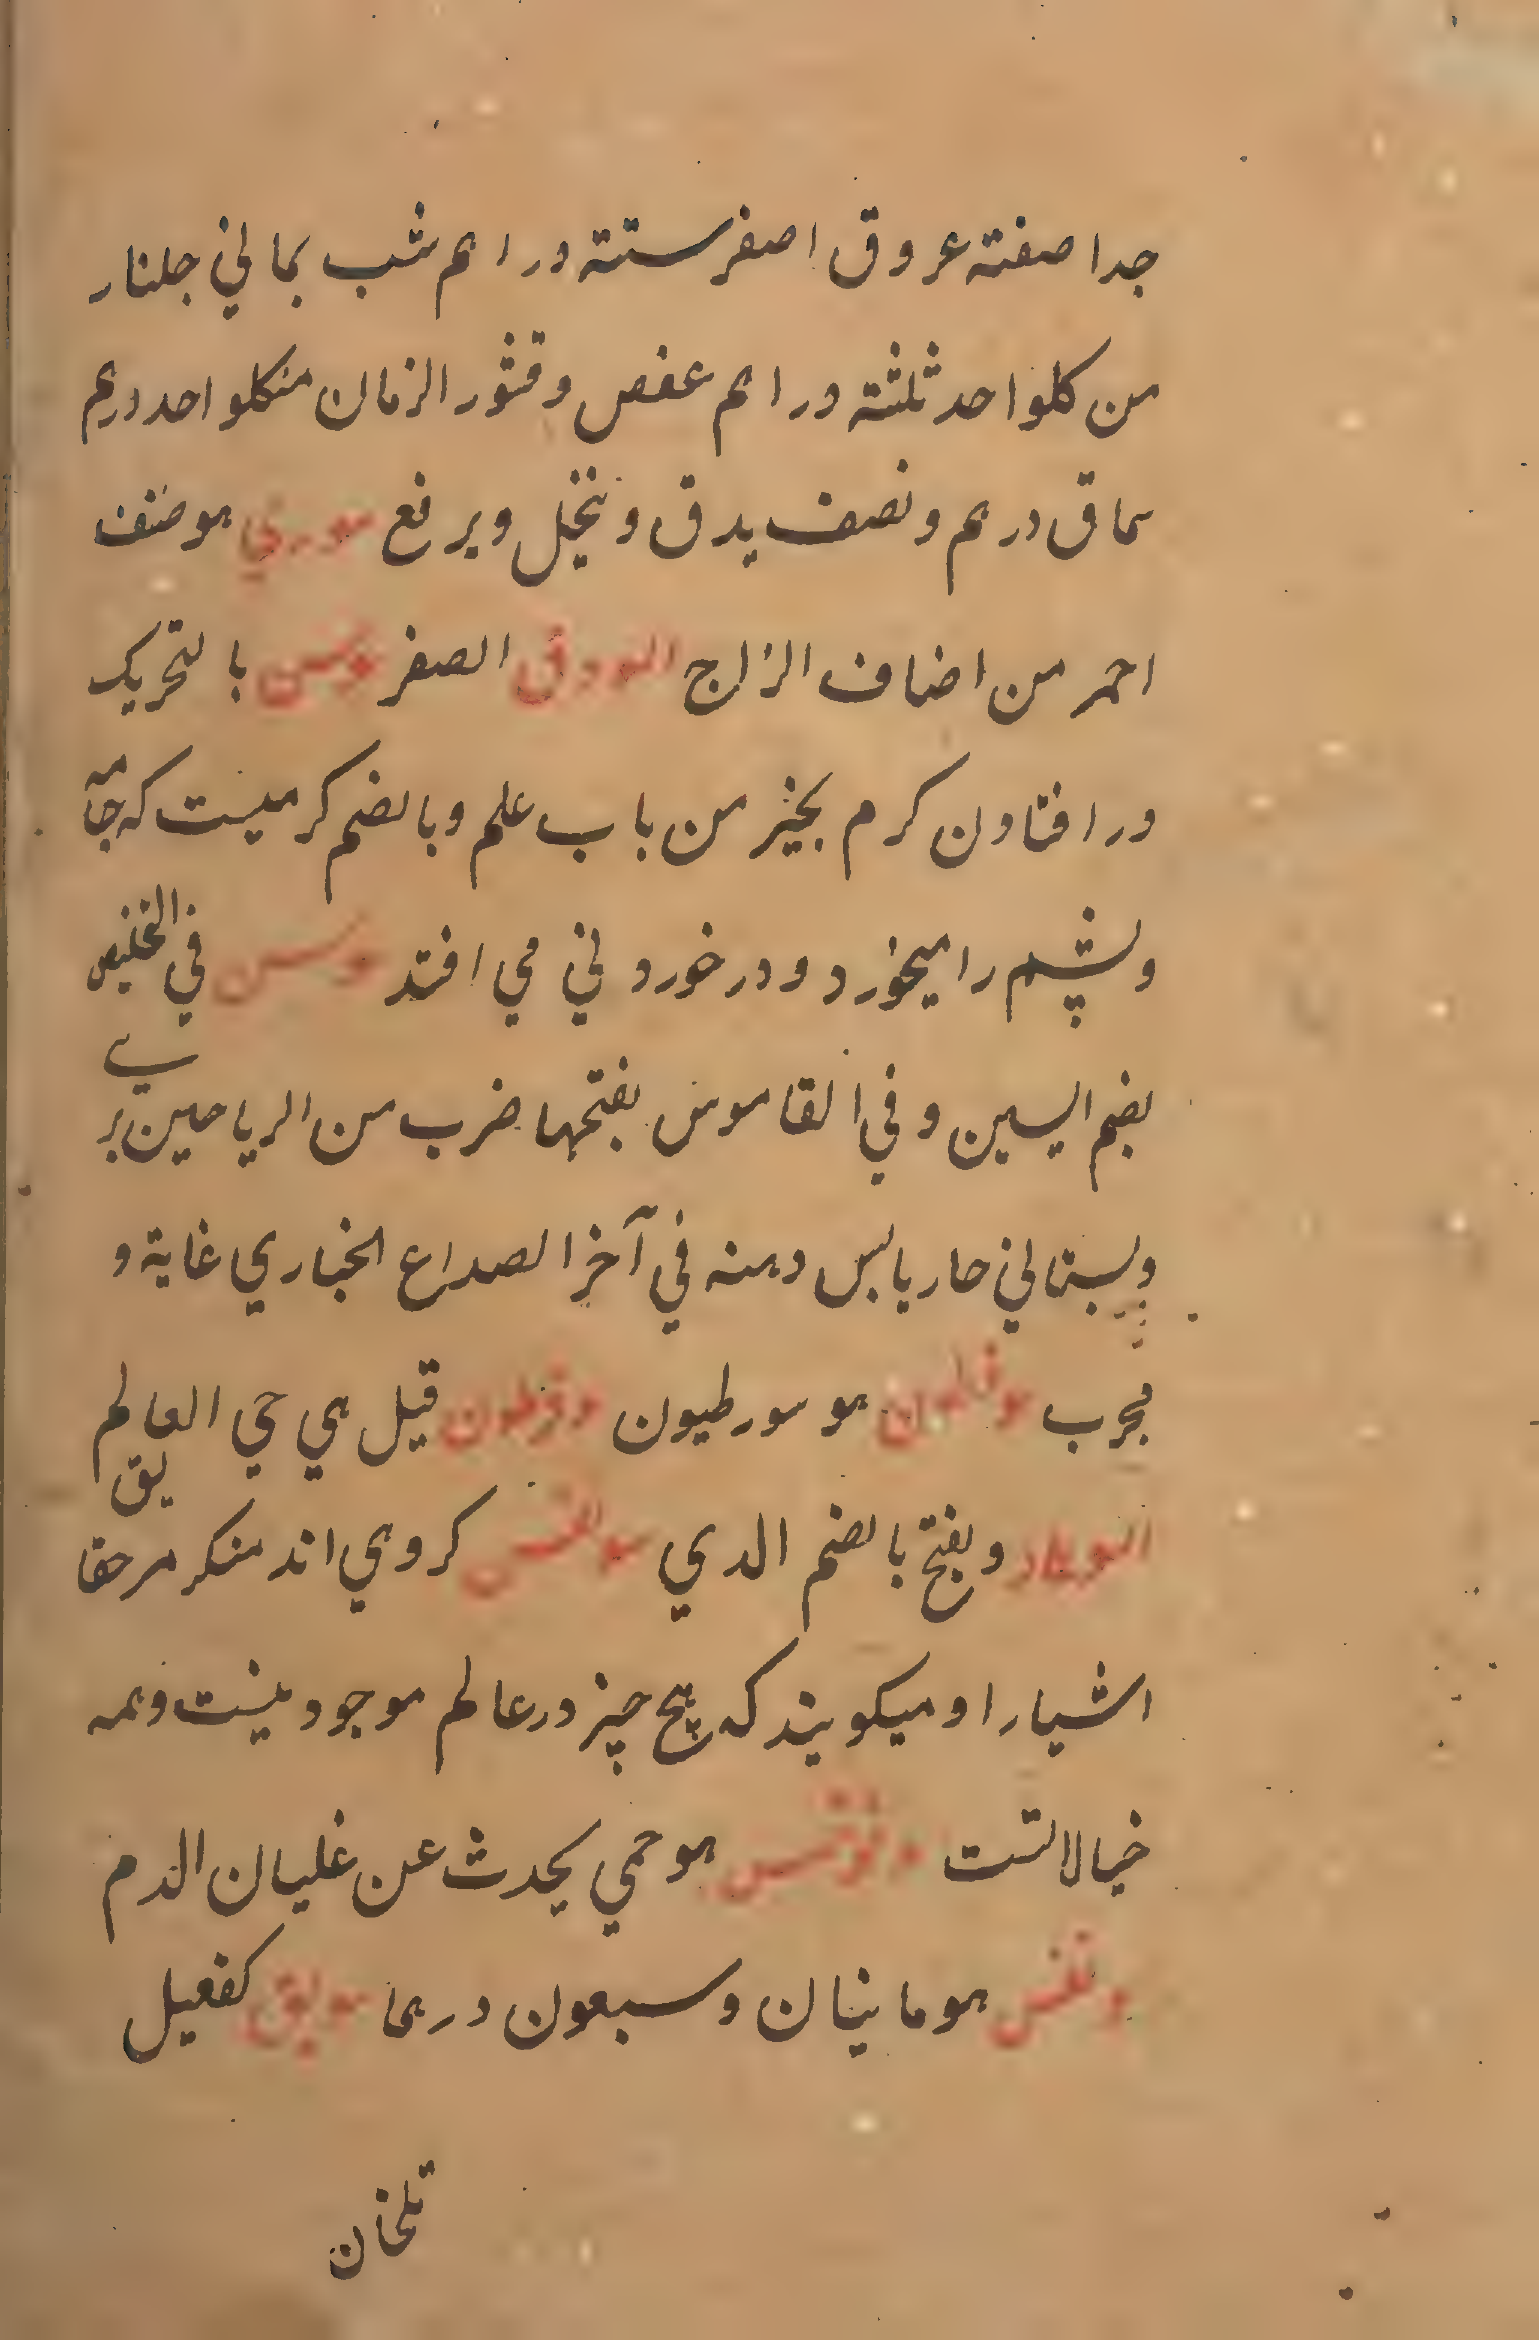 جدا صفته عروق اصفر ستة دراهم شب يماني جلنار
من كلواحد ثلثة دراهم عفص وقشور الرمان منكلواحد درهم
سماق درهم ونصف يدق وينخل ويرفع سوري هو صنف
احمر من اصناف الزاج السورق الصفر سوس بالتحريك
در افتادن كرم بخيز من باب علم وبالضم كرميست كه جامه
وپشم را ميخورد ودر خوردني مي افتد سوسن في التخليص
بضم السين وفي القاموس بفتحها ضرب من الرياحين بري
وبستاني حار يابس دهنه في آخر الصداع البخاري غاية و
مجرب هو سورطيون قيل هي حي العالم
ويفتح بالضم الدي كروهي اند منكر مر حقايق
اشيا را وميكويند كه هيچ چيز در عالم موجود نيست وهمه
خيالاتست سونوخس هو حمي يحدث عن غليان الدم
هو ماىتان وسبعون درهما سويق كفعيل
تلخان